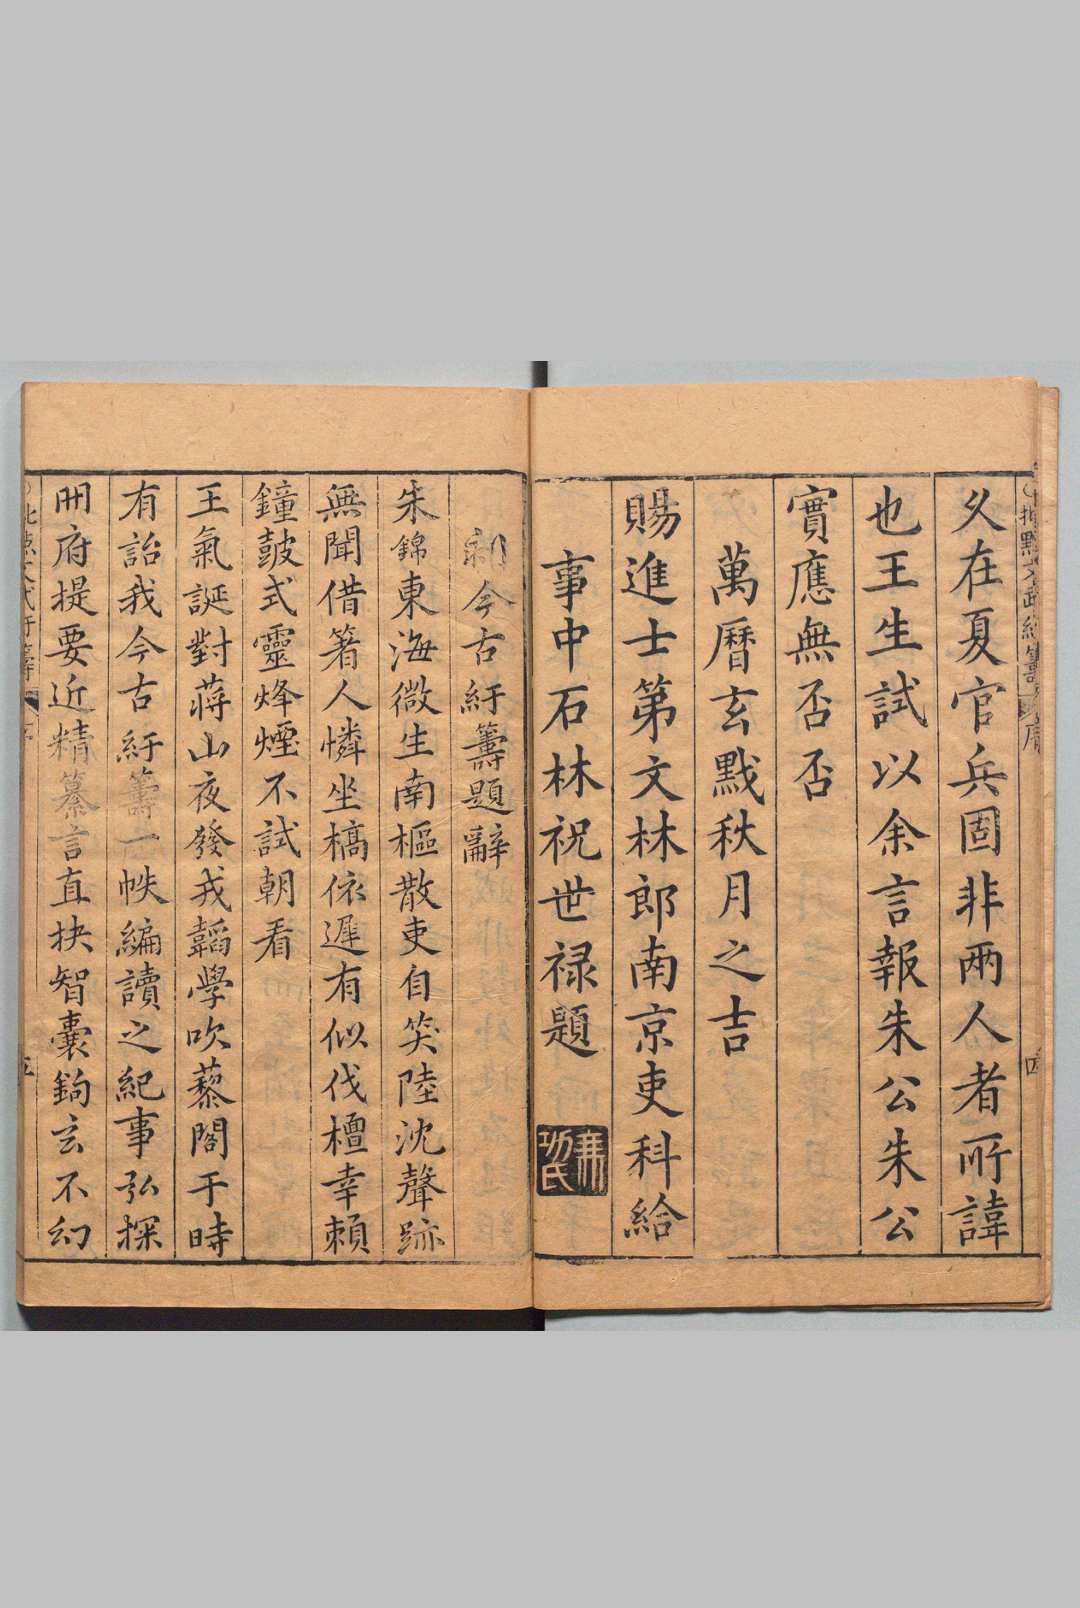 久在夏官兵固非兩人者所諱
也王生試以余言報朱公朱公
實應無否否
萬曆玄黓秋月之吉
賜進士第文林郎南京吏科給
事中石林祝世禄題
今古紆籌題辭
朱錦東海微生南樞散吏自笑陸沈聲跡
無聞借箸人憐坐槁依遲有似伐檀幸賴
鐘皷式靈烽煙不試朝看
王氣誕對蔣山夜發戎韜學吹藜閣于時
有詒我今古紆籌一帙編讀之紀事弘探
冊府提要近精纂言直抉智囊鉤玄不幻